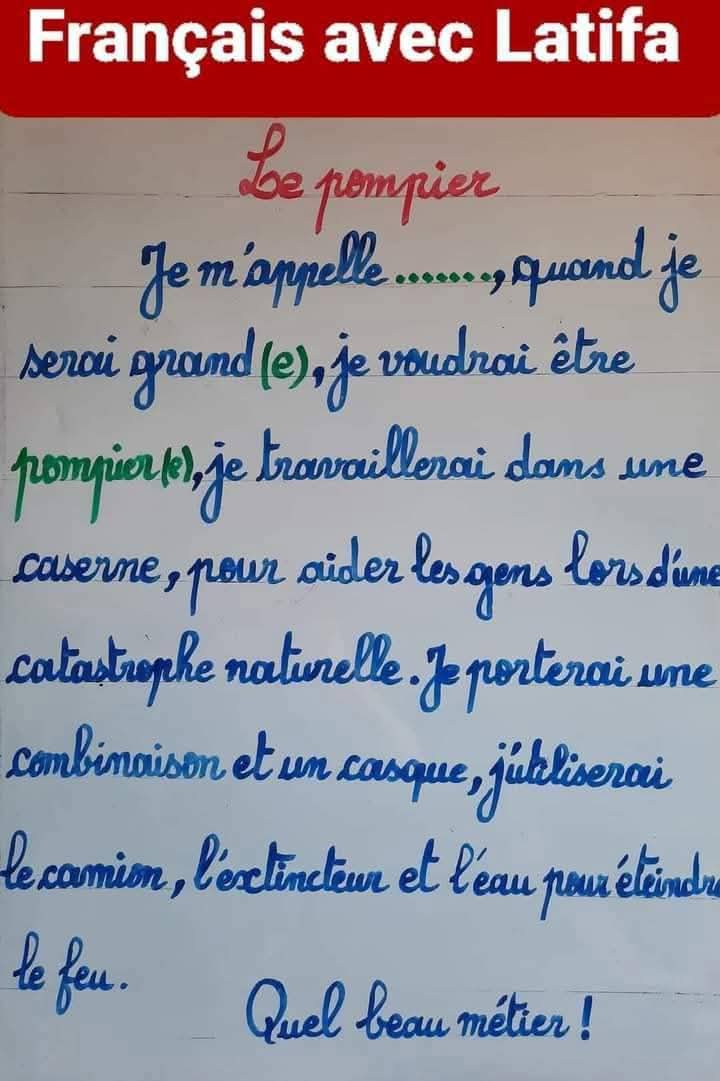 Français avec Latifa
Le pompier
Je m'appelle ......., quand je
serai grand(e), je voudrai être
pompier(e), je travaillerai dans une
caserne, pour aider les gens lors d'une
catastrophe naturelle. Je porterai une
combinaison et un casque, j'utiliserai
le camion, l'extincteur et l'eau pour éteindre
le feu.
Quel beau métier !